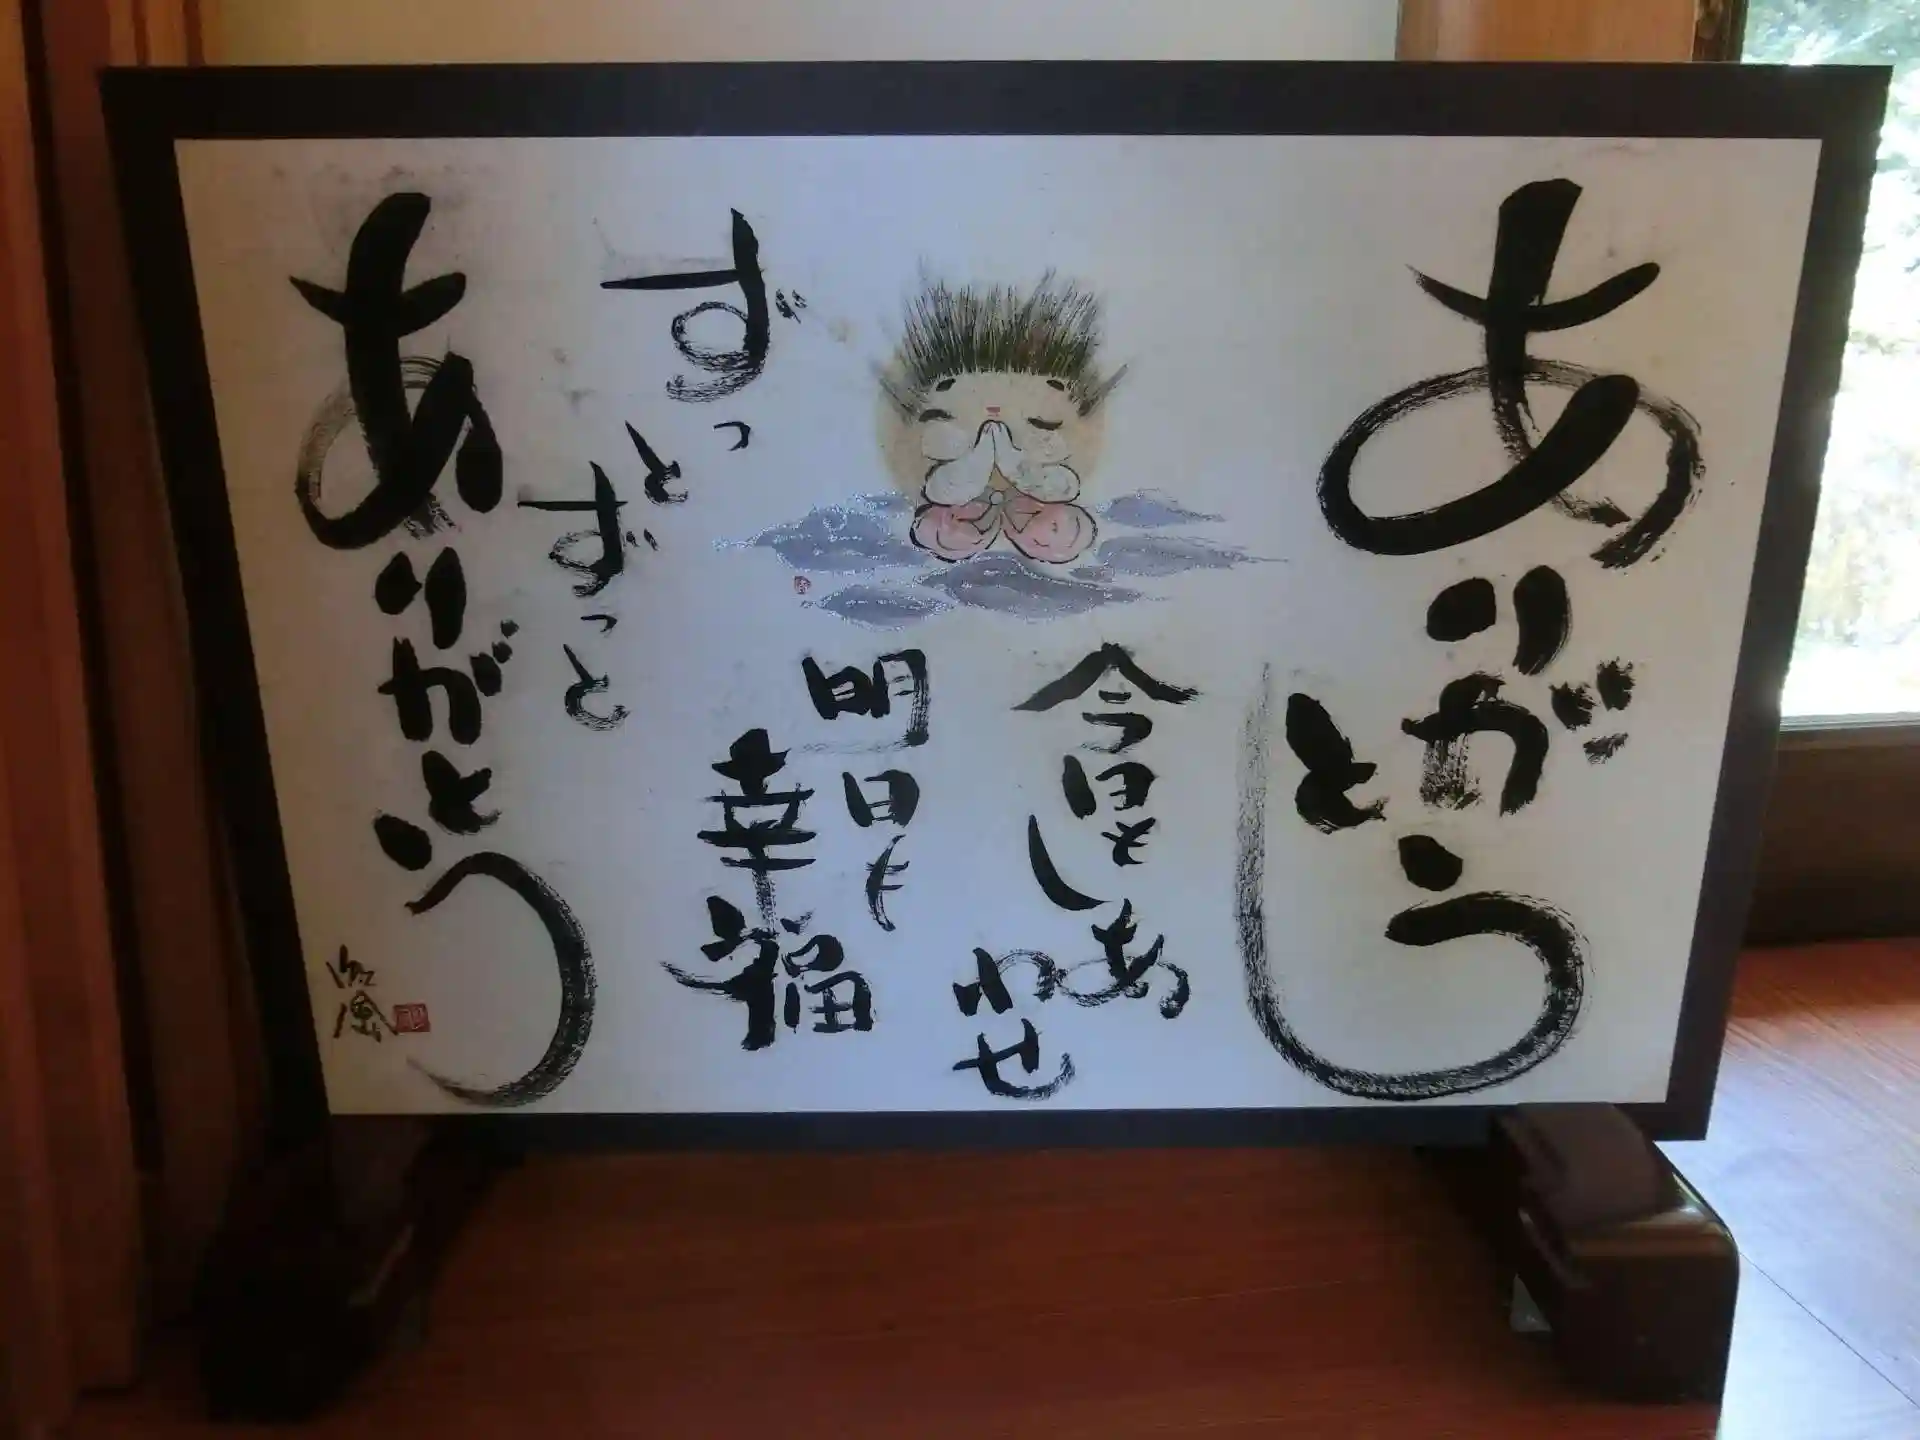 ありがとう
今日もしあわせ
明日も
幸福
ずっと
ずっと
ありがとう